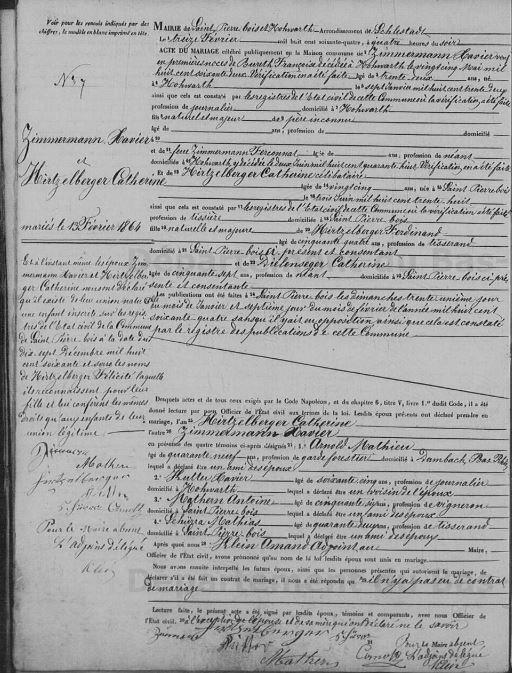 Voir pour les renvois indiqués par des
chiffres, le modèle en blanc imprimé en tête.
N.° 7
Zimmermann Xavier
et
Hirtzelberger Catherine
mariés le 13 Février 1864
Et à l'instant même les époux Zim-
mermann Xavier et Hirtzelber-
ger Catherine nous ont déclaré
qu'il existe de leur union naturelle
un enfant inscrit sur les regis-
tres de l'état civil de la Commune
de Saint Pierre bois à la date du
dix sept Décembre mil huit
cent soixante et sous les noms
de Hirtzelberger Félicité laquelle
ils reconnaissent pour leur
fille et lui confèrent les mêmes
droits qu'aux enfants de leur
union légitime
Mathern
Pour le Maire absent
L'adjoint délégué
Klein
MAIRIE de Saint Pierre bois et Hohwarth Arrondissement de Schlestadt
Le treize Février mil huit cent soixante-quatre, à quatre heures du soir
ACTE DU MARIAGE célébré publiquement en la Maison commune de Zimmermann Xavier veuf
en premières noces de Françoise décédée à Hohwarth le vingt cinq Mai mil
huit cent soixante deux Vérification en a été faite âgé de trente deux ans, né
à Hohwarth le sept Janvier mil huit cent trente deux
ainsi que cela est constaté par les registres de l'Etat civil de cette Commune ici la vérification a été faite
profession de journalier domicilié à Hohwarth
fils naturel et majeur de père inconnu
âgé de ans, profession de domicilié
et de feue Zimmermann âgée de ans, profession de néant
domiciliée à Hohwarth y décédée le deux Juin mil huit cent quarante huit Vérification en a été faite
Et de Hirtzelberger Catherine célibataire
âgée de vingt cinq ans, née à Saint Pierre bois
le trois Juin mil huit cent trente huit
ainsi que cela est constaté par les registres de l'état civil de cette Commune ici la vérification a été faite
profession de domiciliée à Saint Pierre bois
fille naturelle et majeure de Hirtzelberger Ferdinand
âgé de cinquante quatre ans, profession de tisserand
domicilié à Saint Pierre bois ici présent et consentant
et de Catherine
âgée de cinquante sept ans, profession de néant domiciliée à Saint Pierre bois ici pré-
sente et consentante
Les publications ont été faites à Saint Pierre bois les dimanches trente unième jour
du mois de Janvier et septième jour du mois de Février de l'année mil huit cent
soixante quatre sans qu'il y ait eu opposition ainsi que cela est constaté
par le registre des publications de cette Commune
Desquels actes et de tous ceux exigés par le Code Napoléon, et du chapitre 6, titre V, livre 1.er dudit Code, il a été
donné lecture par nous Officier de l'État civil aux termes de la loi. Lesdits époux présents ont déclaré prendre en
mariage, l'un Hirtzelberger Catherine
l'autre Zimmermann Xavier
en présence des quatre témoins ci-après désignés 1.° Arnold Mathieu
âgé de quarante neuf ans, profession de garde forestier domicilié à Dambach, Bas Rhin
lequel a déclaré être un ami des époux
2.° Xavier âgé de soixante cinq ans, profession de journalier
domicilié à Hohwarth lequel a déclaré être un voisin de l'époux
3.° Mathern Antoine âgé de cinquante six ans, profession de vigneron
domicilié à Saint Pierre bois lequel a déclaré être un ami des époux
4.° Mathias âgé de quarante deux ans, profession de tisserand
domicilié à Saint Pierre bois lequel a déclaré être un ami des époux
Après quoi nous Klein Amand Adjoint au Maire,
Officier de l'État civil, avons prononcé qu'au nom de la loi lesdits époux sont unis en mariage.
Nous avons ensuite interpellé les futurs époux, ainsi que les personnes présentes qui autorisent le mariage, de
déclarer s'il a été fait un contrat de mariage, il nous a été répondu qu'il n'y a pas eu de contrat
de mariage
Lecture faite, le présent acte a été signé par lesdits époux, témoins et comparants, avec nous Officier de
l'État civil. à l'exception de l'épouse et de sa mère qui ont déclaré ne le savoir
Mathern
Pour le Maire absent
L'adjoint délégué
Klein